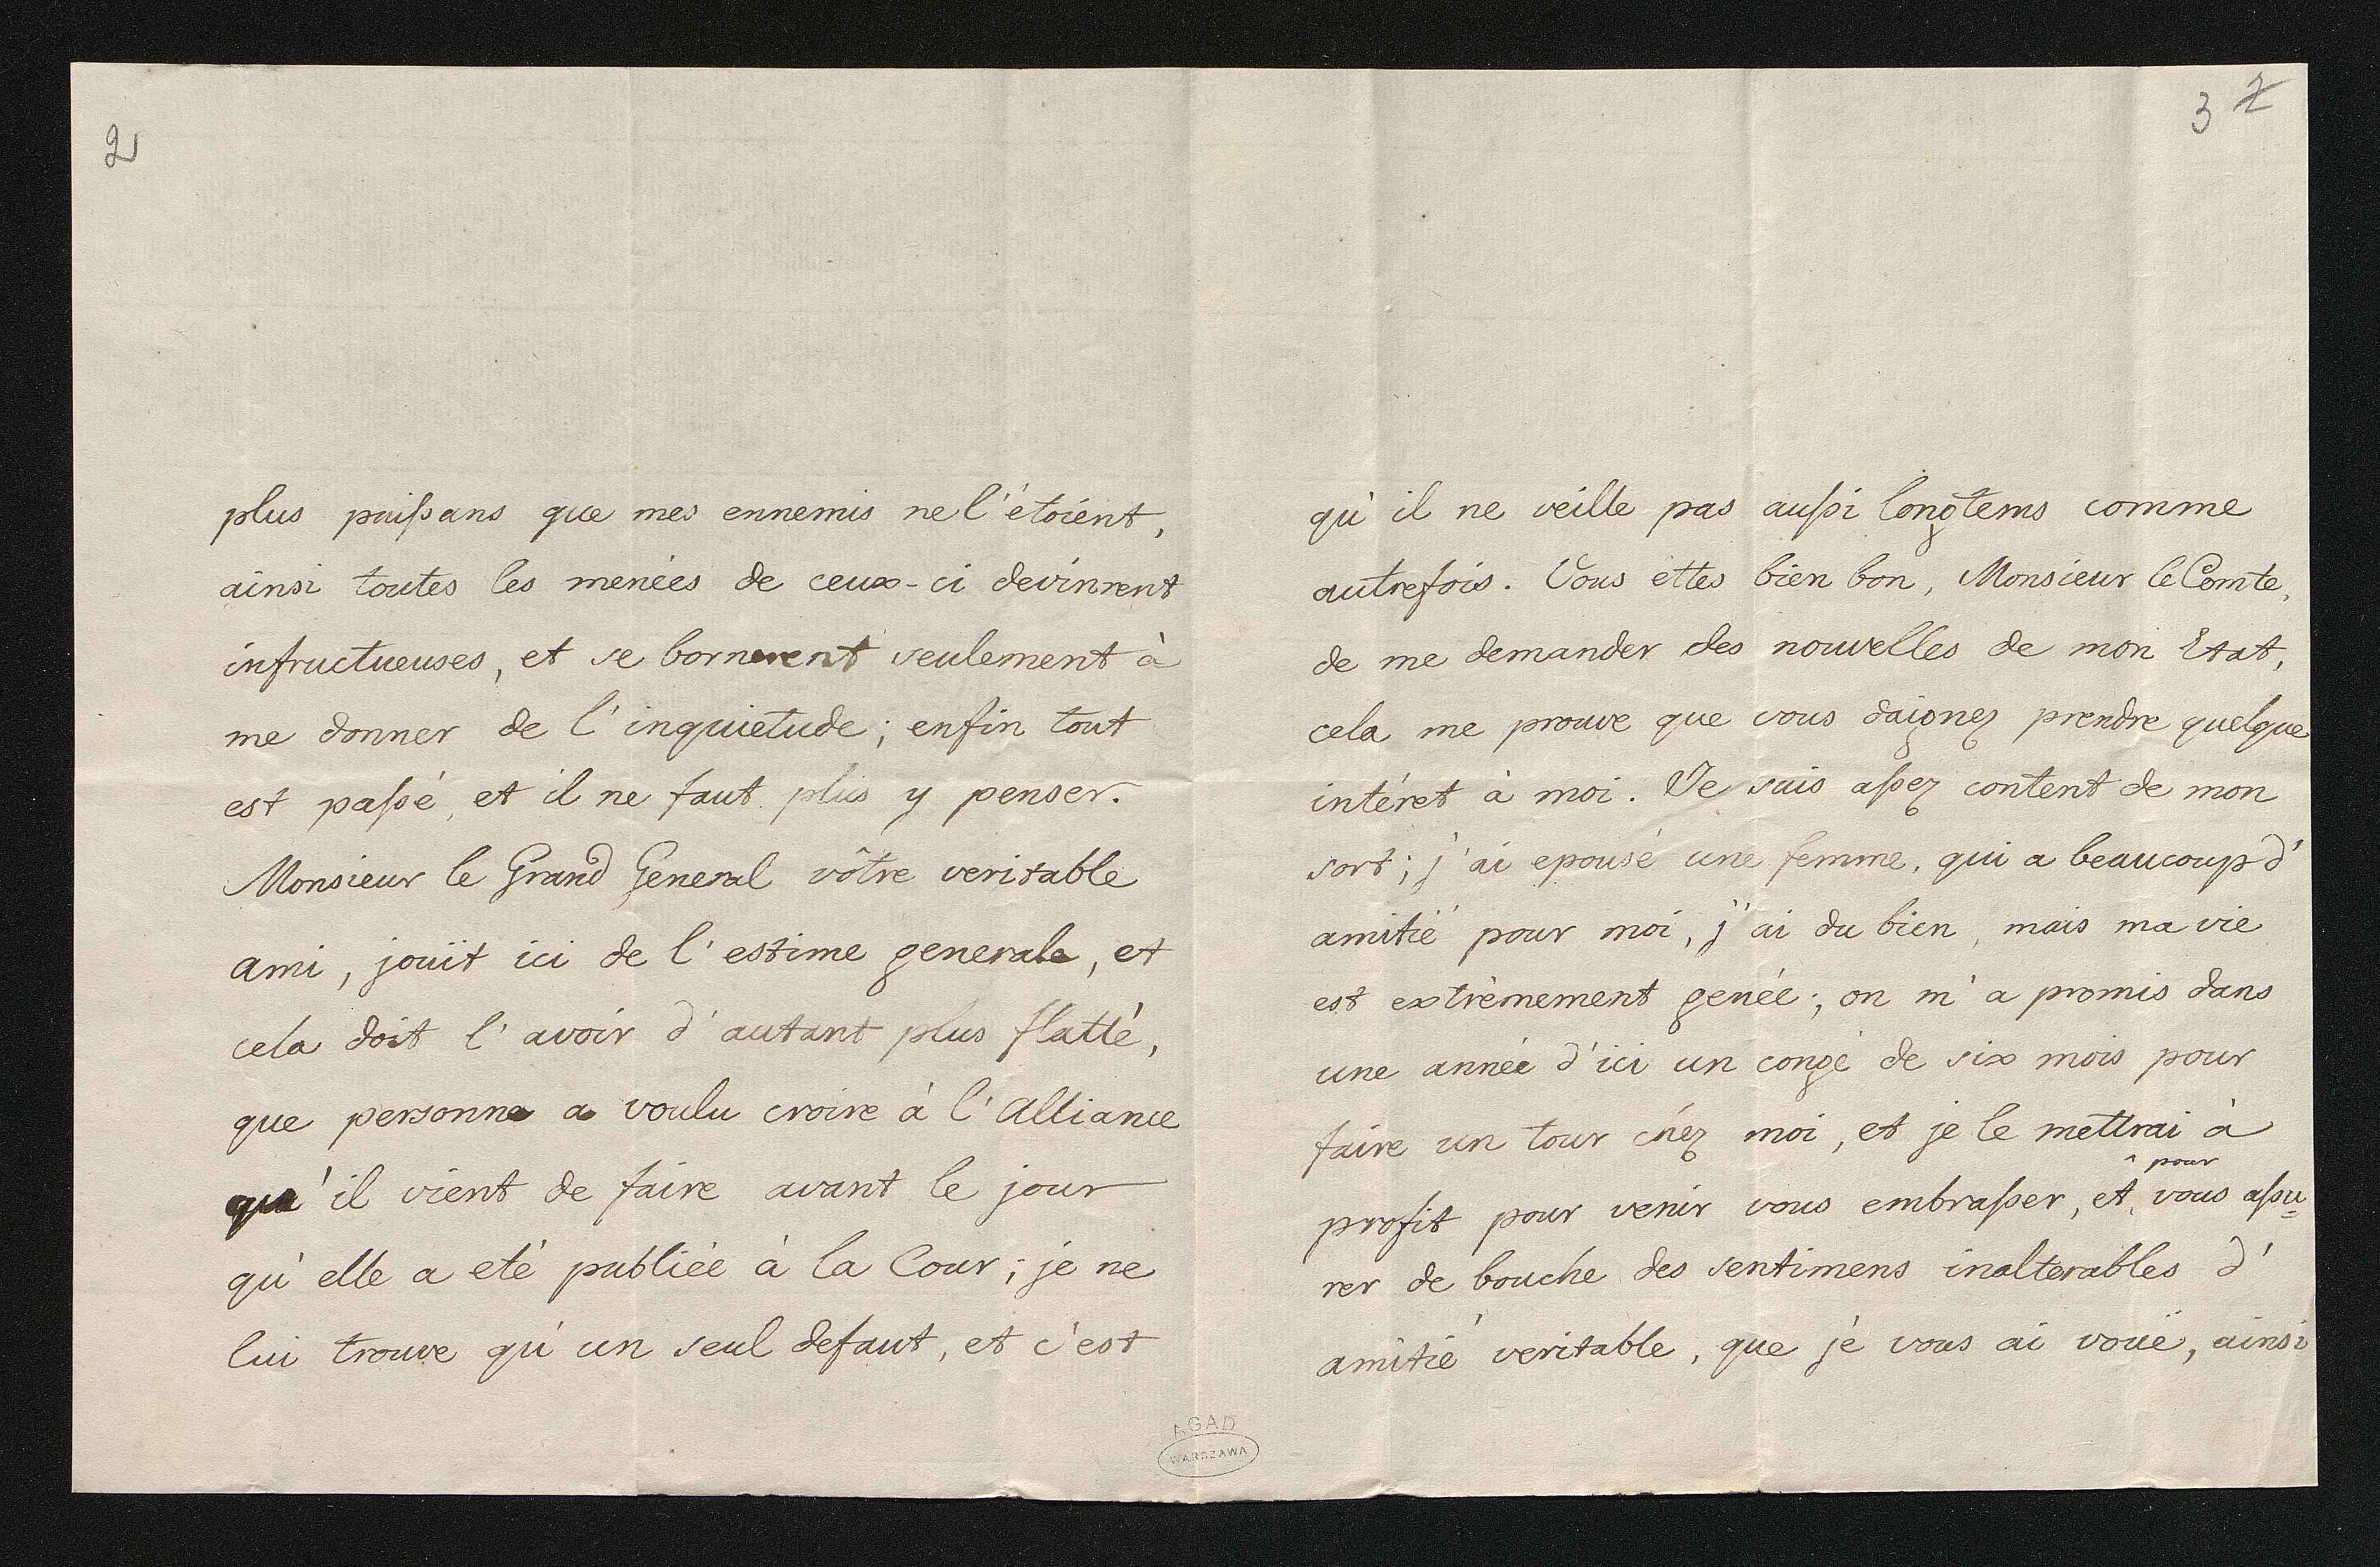 2
plus puissans que mes ennemis ne l'étoient,
ainsi toutes les menées de ceux-ci devinrent
infructueuses, et se bornerent seulement à
me donner de l'inquietude; enfin tout
est passé, et il ne faut plus y penser.
Monsieur le Grand General vôtre veritable
ami, jouït ici de l'estime generale, et
cela doit l'avoir d'autant plus flatté,
que personne a voulu croire à l'Alliance
qu'il vient de faire avant le jour
qu'elle a eté publiée à la Cour; je ne
lui trouve qu'un seul defaut, et c'est
3 2
qu'il ne veille pas aussi longtems comme
autrefois. Vous ettes bien bon, Monsieur le Comte,
de me demander des nouvelles de mon Etat,
cela me prouve que vous daignez prendre quelque
intéret à moi. Je suis assez content de mon
sort; j'ai epousé une femme, qui a beaucoup d'
amitié pour moi, j'ai du bien, mais ma vie
est extrèmement genée; on m'a promis dans
une année d'ici un congé de six mois pour
faire un tour chez moi, et je le mettrai à
profit pour venir vous embrasser, et pour vous assu=
rer de bouche des sentimens inalterables d'
amitié veritable, que je vous ai voüé, ainsi
AGAD
WARSZAWA